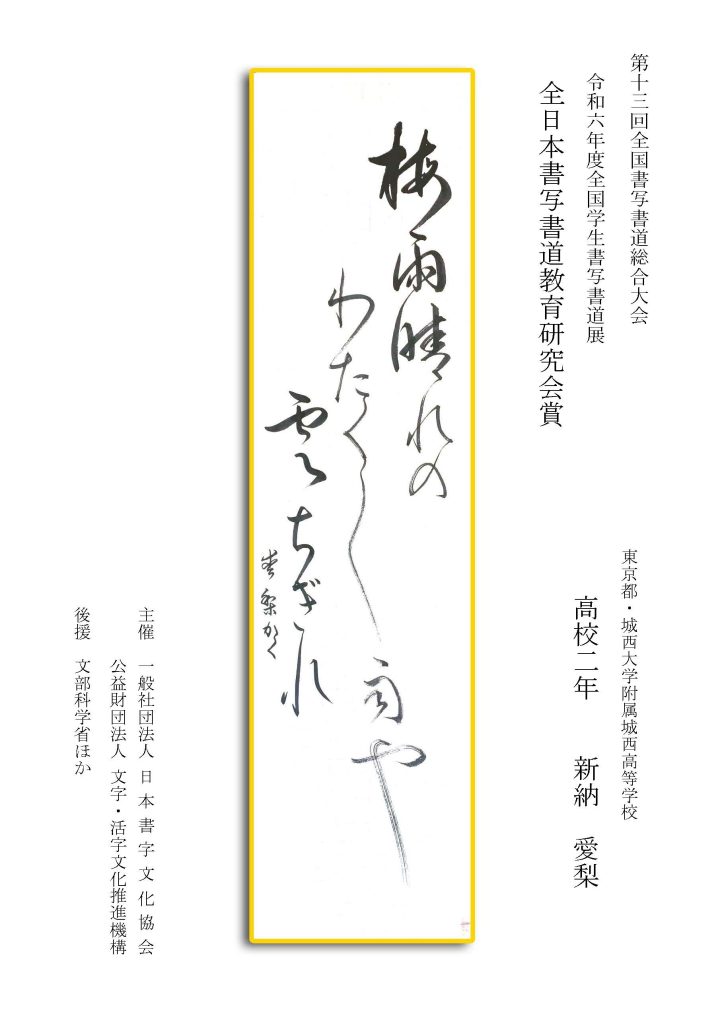 第十三回全国書写書道総合大会
令和六年度全国学生書写書道展
全日本書写書道教育研究会賞
東京都・城西大学附属城西高等学校
高校二年 新納 愛梨
梅雨晴れの
わたくし雨や
雲ちぎれ
愛梨かく
主催 一般社団法人 日本書字文化協会
公益財団法人 文字・活字文化推進機構
後援 文部科学省ほか